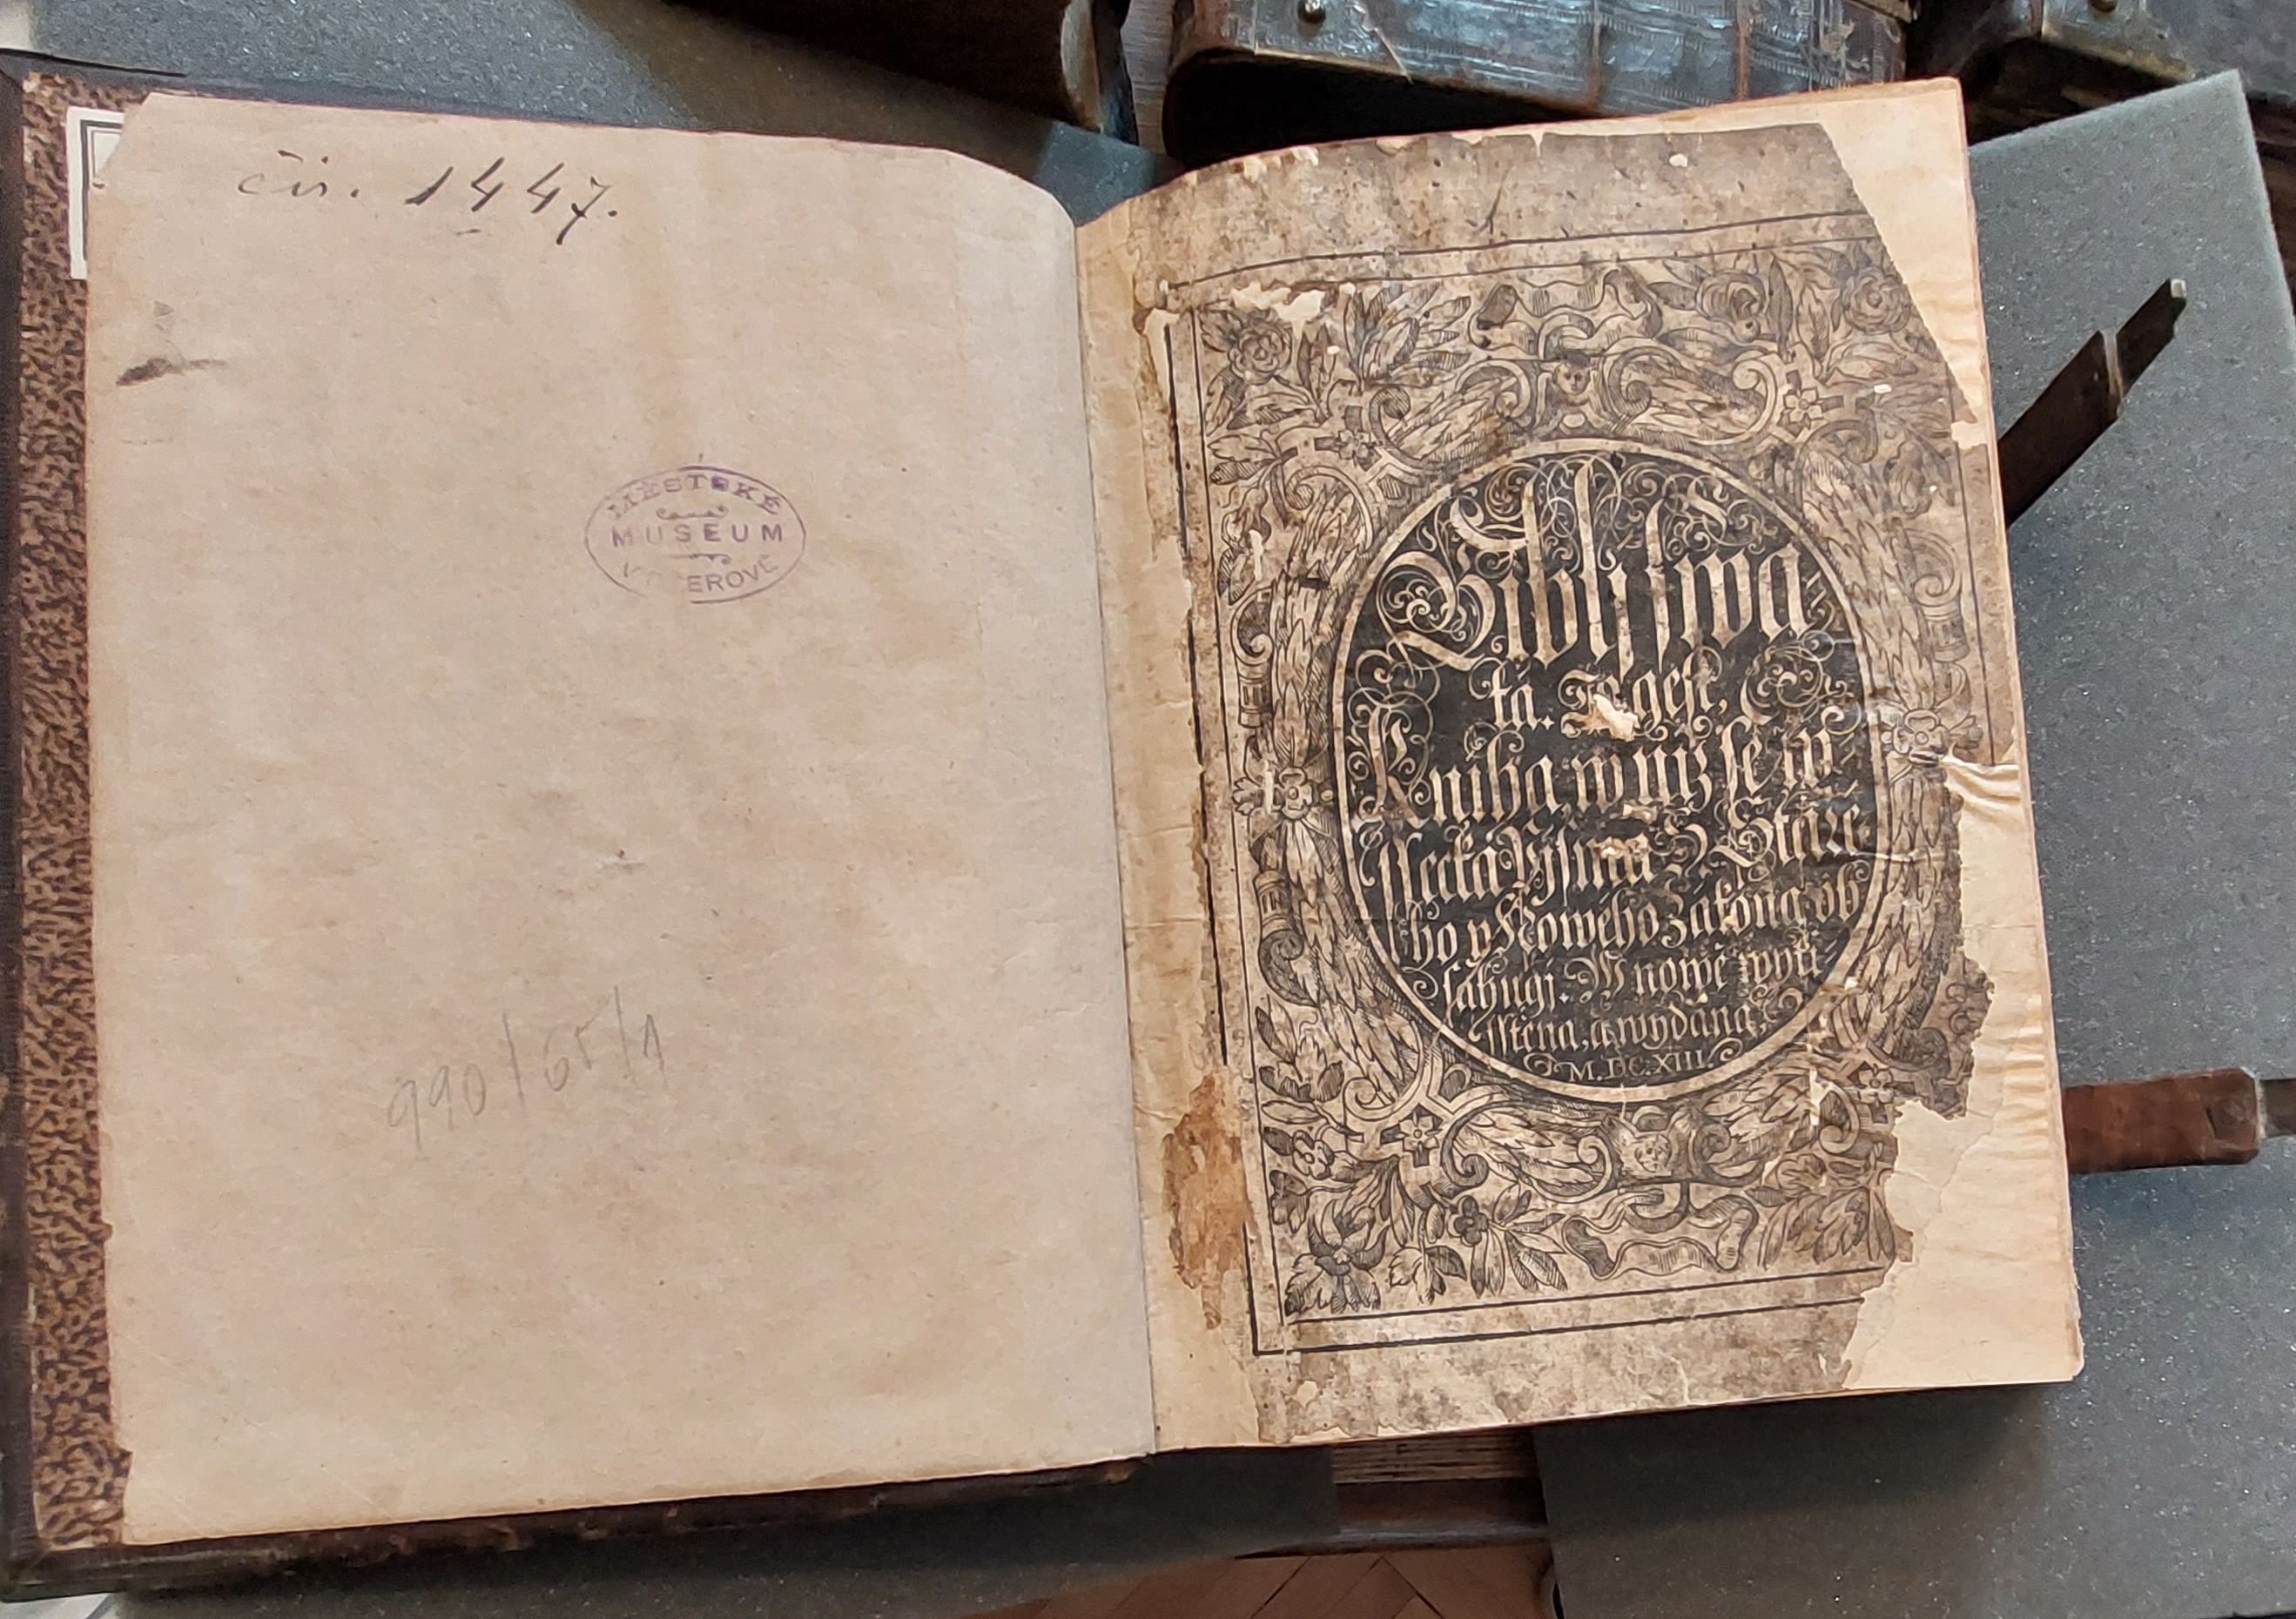 čís. 1447.
MĚSTSKÉ
MUSEUM
990/65/1
Biblj swa⸗
tá. To gest,
Kniha, w njž se w⸗
ssecka Pjsma S. Staré⸗
ho y Nowého Zákona ob⸗
sahugj. W nowě wyti⸗
sstěna, a wydána.
M.DC.XIII.